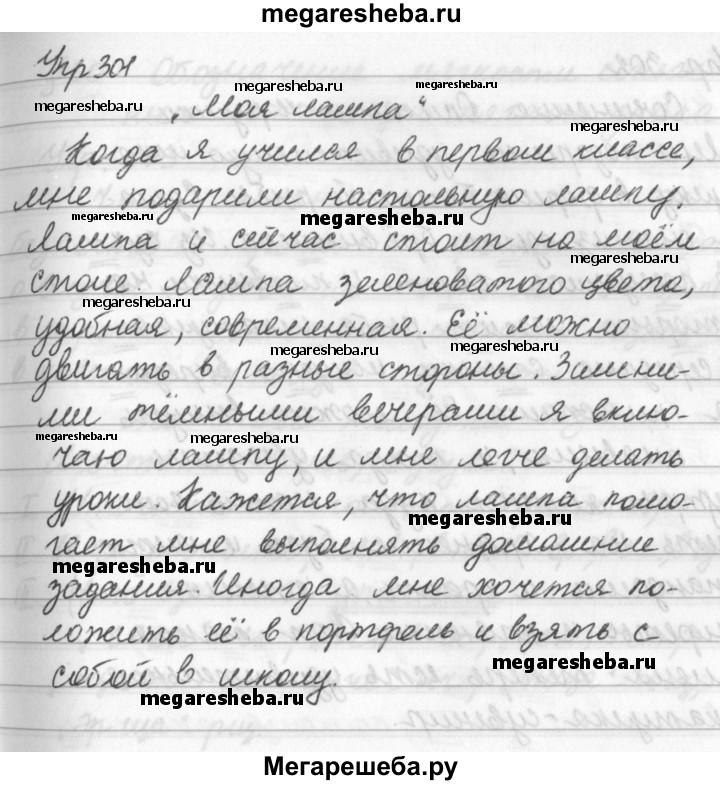 megaresheba.ru
Упр 301
megaresheba.ru
megaresheba.ru
„Моя лампа“
megaresheba.ru
Когда я учился в первом классе,
мне подарили настольную лампу.
megaresheba.ru
megaresheba.ru
Лампа и сейчас стоит на моём
megaresheba.ru
столе. Лампа зеленоватого цвета,
megaresheba.ru
удобная, современная. Её можно
megaresheba.ru
megaresheba.ru
двигать в разные стороны. Зимни-
ми тёмными вечерами я вклю-
megaresheba.ru
megaresheba.ru
чаю лампу, и мне легче делать
уроки. Кажется, что лампа помо-
megaresheba.ru
гает мне выполнять домашние
megaresheba.ru
задания. Иногда мне хочется по-
ложить её в портфель и взять с
megaresheba.ru
собой в школу.
megaresheba.ru
Мегарешеба.ру